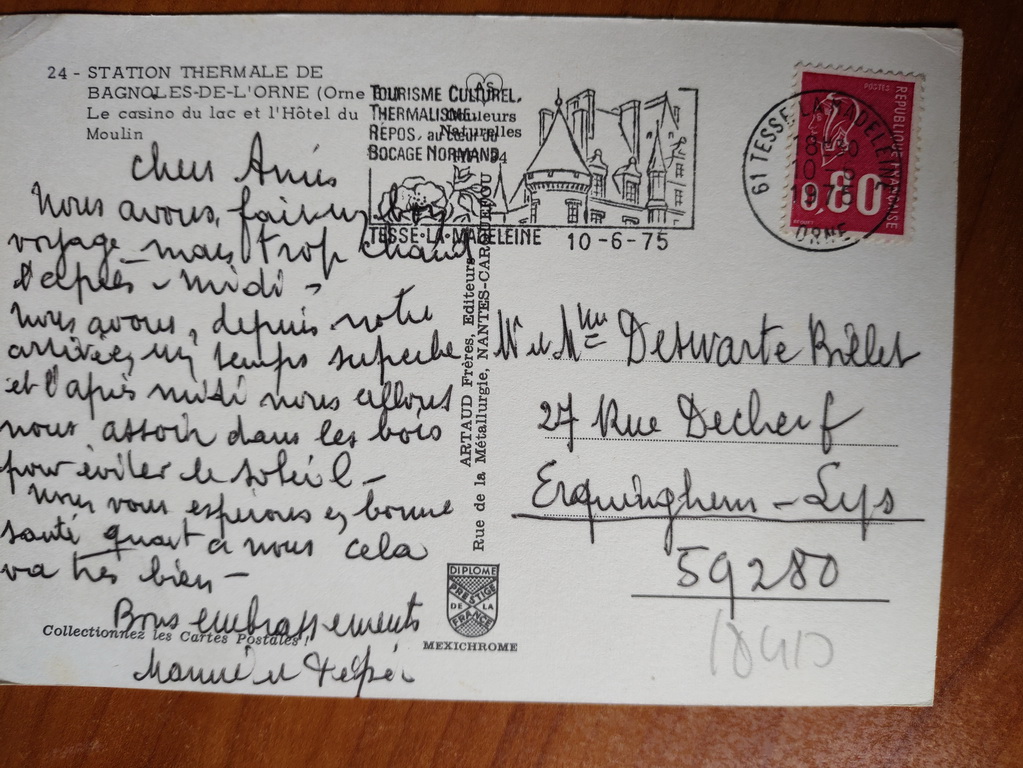 24 - STATION THERMALE DE
BAGNOLES-DE-L'ORNE (Orne
Le casino du lac et l'Hôtel du
Moulin
AS
Couleurs
Naturelles
TOURISME CULTUREL,
THERMALISME,
REPOS, au cœur du
BOCAGE NORMAND
TESSE·LA·MADELEINE
10-6-75
61 TESSE LA MADELEINE
18H30
10-6
1975
ORNE
POSTES
REPUBLIQUE FRANÇAISE
0.80
Chers Amis
Nous avons fait un bon
voyage - mais trop chaud
l'après-midi -
Nous avons, depuis notre
arrivée, un temps superbe
et l'après midi nous allons
nous assoir dans les bois
pour éviter le soleil -
Nous vous espérons en bonne
santé quant à nous cela
va très bien -
Bons embrassements
et Pépé
Collectionnez les Cartes Postales !
ARTAUD Frères, Editeurs
Rue de la Métallurgie, NANTES-CARQUEFOU
DIPLOME
PRESTIGE
DE LA
FRANCE
MEXICHROME
Mr et Mme Deswarte
27 Rue Decherf
Erquinghem - Lys
59280